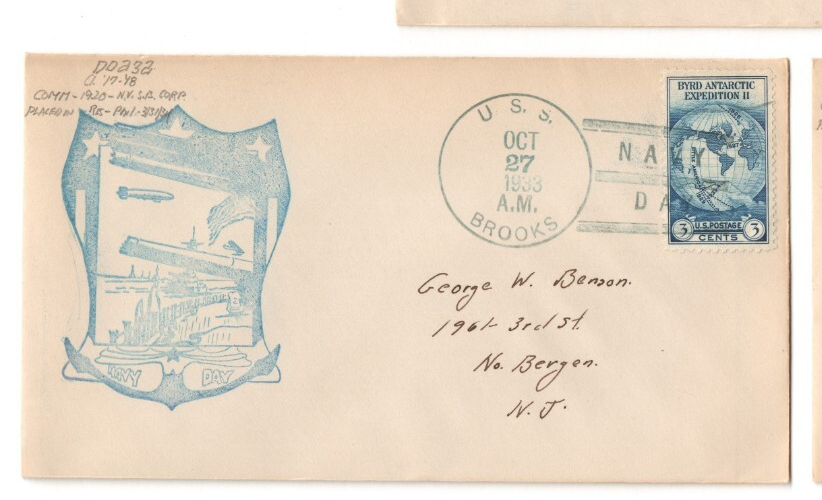 DD232
COMM-1920-N.Y. S.B. CORP.
PLACED IN
NAVY DAY
U. S. S.
OCT
27
1933
A.M.
BROOKS
NAVY
DA
BYRD ANTARCTIC
EXPEDITION II
3 U.S. POSTAGE 3
CENTS
George W. Benson.
1961- 3rd St.
No. Bergen.
N. J.